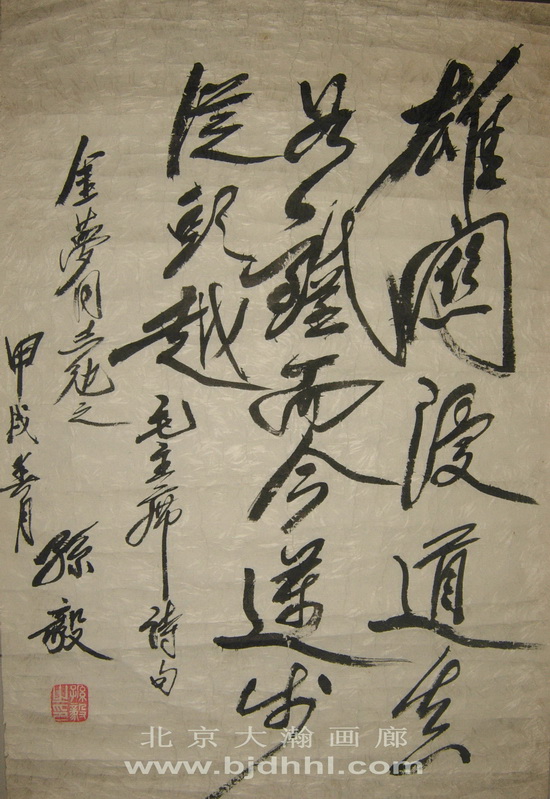 雄關漫道真
如鐵而今邁步
從頭越 毛主席詩句
金夢同志之
甲戌春月 孫毅
孫毅之印
北京大瀚画廊
www.bjdhhl.com